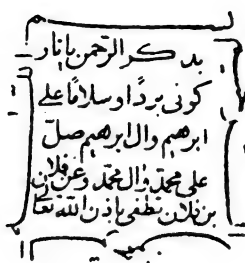 بدكر الرحمن يا نار
كونى بردًا و سلامًا على
ابرهيم وال ابرهيم صلّ
على محمّد وال محمّد وعن فلان
بن فلان تطفى باذن الله تعا